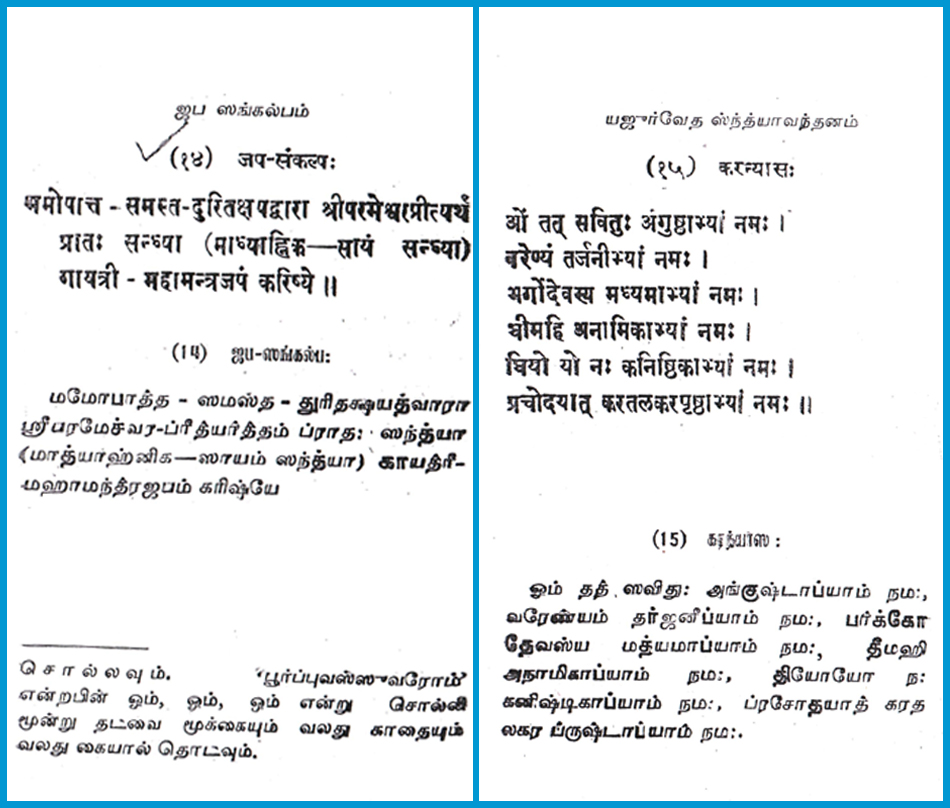 ஜப ஸங்கல்பம்
(१४) जप-संकल्पः
ममोपात्त - समस्त-दुरितक्षयद्वारा श्रीपरमेश्वरप्रीत्यर्थं
प्रातः सन्ध्या (माध्याह्निक—सायं सन्ध्या)
गायत्री - महामन्त्रजपं करिष्ये ॥
(14) ஜப-ஸங்கல்ப:
மமோபாத்த - ஸமஸ்த - துரிதக்ஷயத்வாரா
ஸ்ரீபரமேச்வர-ப்ரீத்யர்த்தம் ப்ராத: ஸந்த்யா
(மாத்யாஹ்னிக—ஸாயம் ஸந்த்யா) காயதிரீ-
மஹாமந்திரஜபம் கரிஷ்யே
சொல்லவும். 'பூர்ப்புவஸ்ஸுவரோம்'
என்றபின் ஓம், ஓம், ஓம் என்று சொல்லி
மூன்று தடவை மூக்கையும் வலது காதையும்
வலது கையால் தொடவும்.
யஜுர்வேத ஸ்ந்த்யாவந்தனம்
(१५) करन्यासः
ओं तत् सवितुः अंगुष्ठाभ्यां नमः ।
वरेण्यं तर्जनीभ्यां नमः ।
भर्गोदेवस्य मध्यमाभ्यां नमः ।
धीमहि अनामिकाभ्यां नमः ।
धियो यो नः कनिष्ठिकाभ्यां नमः ।
प्रचोदयात् करतलकरपृष्ठाभ्यां नमः ॥
(15) கரந்யாஸ :
ஓம் தத் ஸவிது: அங்குஷ்டாப்யாம் நம:,
வரேண்யம் தர்ஜனீப்யாம் நம:, பர்க்கோ
தேவஸ்ய மத்யமாப்யாம் நம:, தீமஹி
அநாமிகாப்யாம் நம:, தியோயோ ந:
கனிஷ்டிகாப்யாம் நம:, ப்ரசோதயாத் கரத
லகர ப்ருஷ்டாப்யாம் நம:.